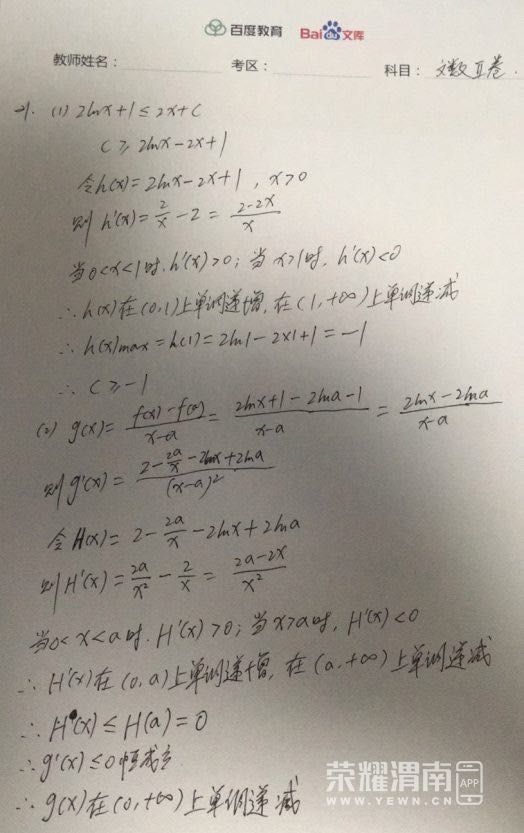 百度教育 Bai du 文库
教师姓名： 考区： 科目： 文数Ⅱ卷.
21. (1) 2lnx+1≤2x+c
c≥2lnx-2x+1
令h(x)=2lnx-2x+1, x>0
则h'(x)=2/x-2=(2-2x)/x
当0<x<1时,h'(x)>0; 当x>1时, h'(x)<0
∴h(x)在(0,1)上单调递增,在(1,+∞)上单调递减
∴h(x)max=h(1)=2ln1-2×1+1=-1
∴c≥-1
(2) g(x)=(f(x)-f(a))/(x-a)=(2lnx+1-2lna-1)/(x-a)=(2lnx-2lna)/(x-a)
则g'(x)=(2-2a/x-2lnx+2lna)/(x-a)²
令H(x)=2-2a/x-2lnx+2lna
则H'(x)=2a/x²-2/x=(2a-2x)/x²
当0<x<a时.H'(x)>0;当x>a时,H'(x)<0
∴H'(x)在(0,a)上单调递增,在(a,+∞)上单调递减
∴H(x)≤H(a)=0
∴g'(x)≤0恒成立
∴g(x)在(0,+∞)上单调递减
荣耀渭南 APP
WWW.YEWN.CN